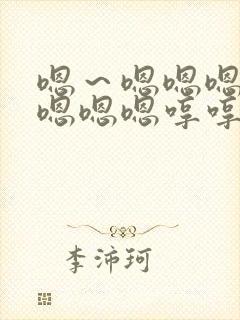 嗯～嗯嗯嗯
嗯嗯嗯哼哼
李沛珂